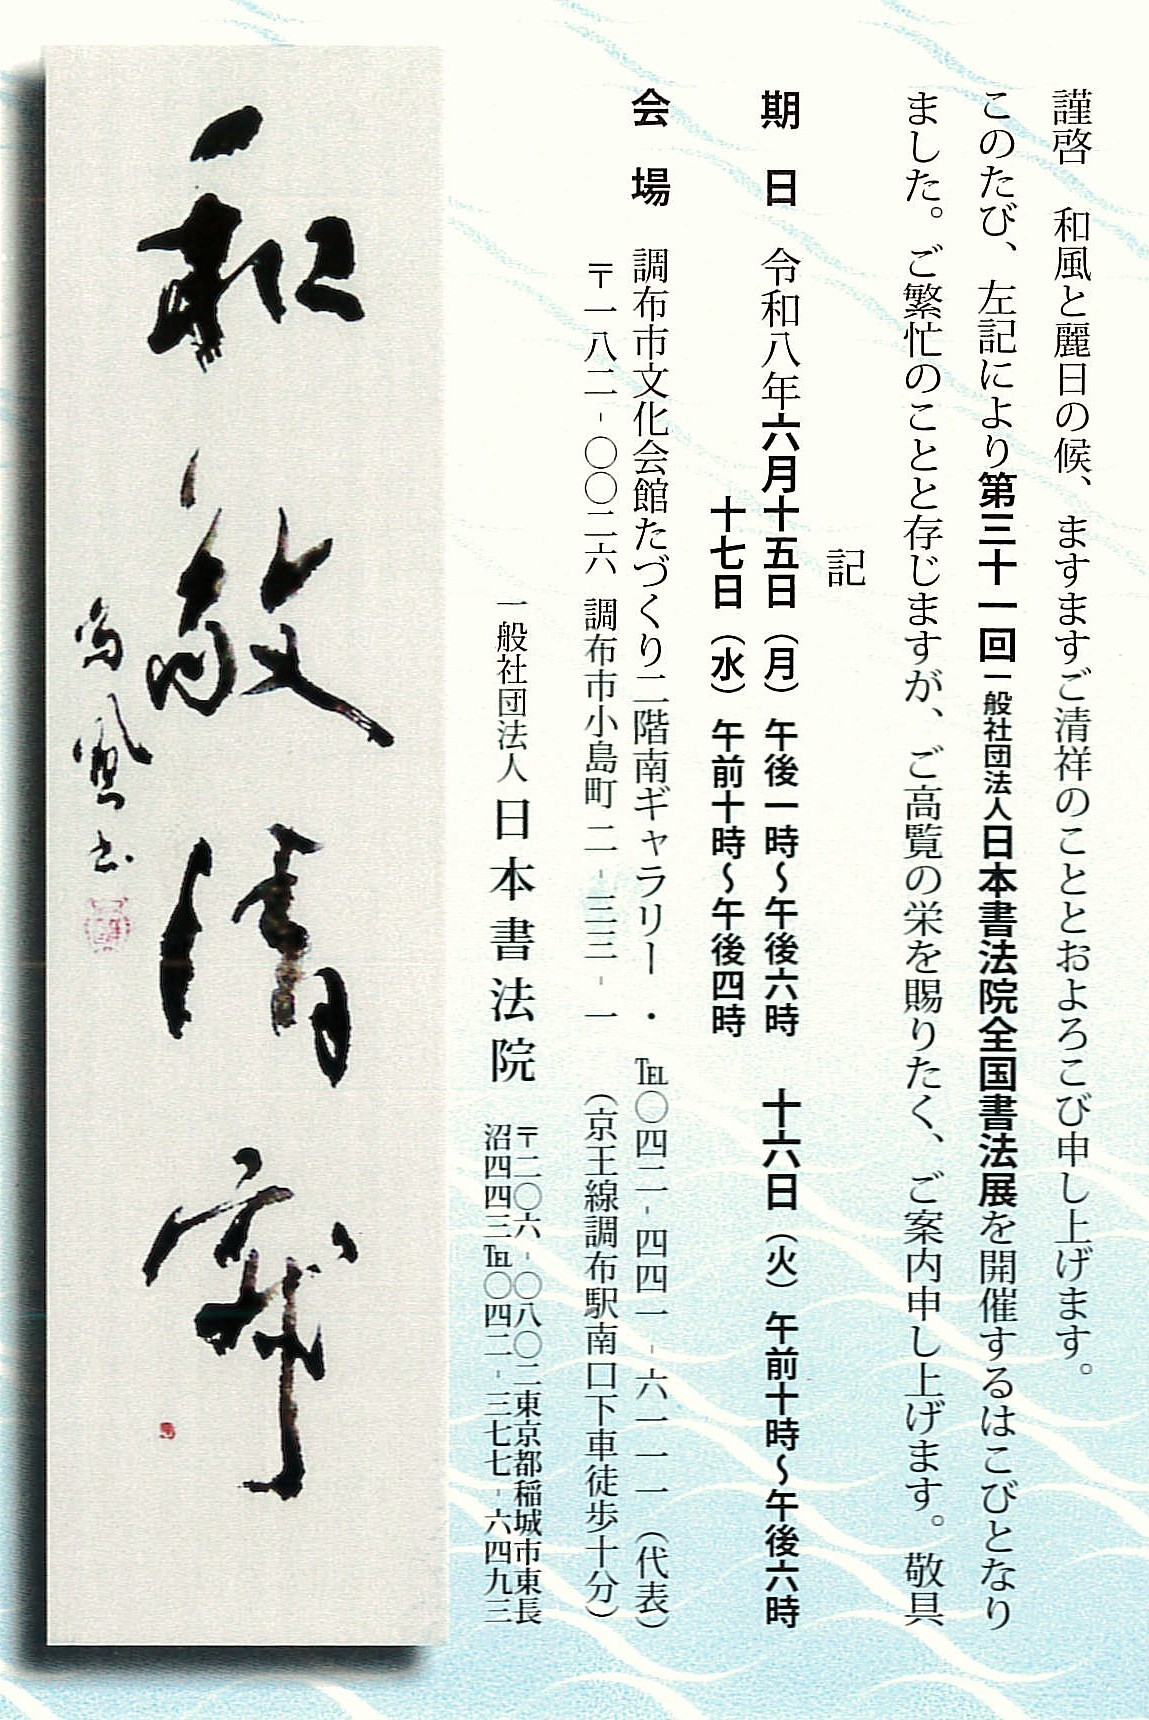 謹啓　和風と麗日の候、ますますご清祥のこととおよろこび申し上げます。
このたび、左記により第三十一回一般社団法人日本書法院全国書法展を開催するはこびとなり
ました。ご繁忙のことと存じますが、ご高覧の栄を賜りたく、ご案内申し上げます。敬具
記
期　日　令和八年六月十五日（月）午後一時～午後六時　十六日（火）午前十時～午後六時
十七日（水）午前十時～午後四時
会　場　調布市文化会館たづくり二階南ギャラリー・℡〇四二-四四一-六一一一（代表）
〒一八二-〇〇二六　調布市小島町二-三三-一　（京王線調布駅南口下車徒歩十分）
一般社団法人　日本書法院
〒二〇六-〇八〇二東京都稲城市東長
沼四四三℡〇四二-三七七-六四九三
和敬清寂